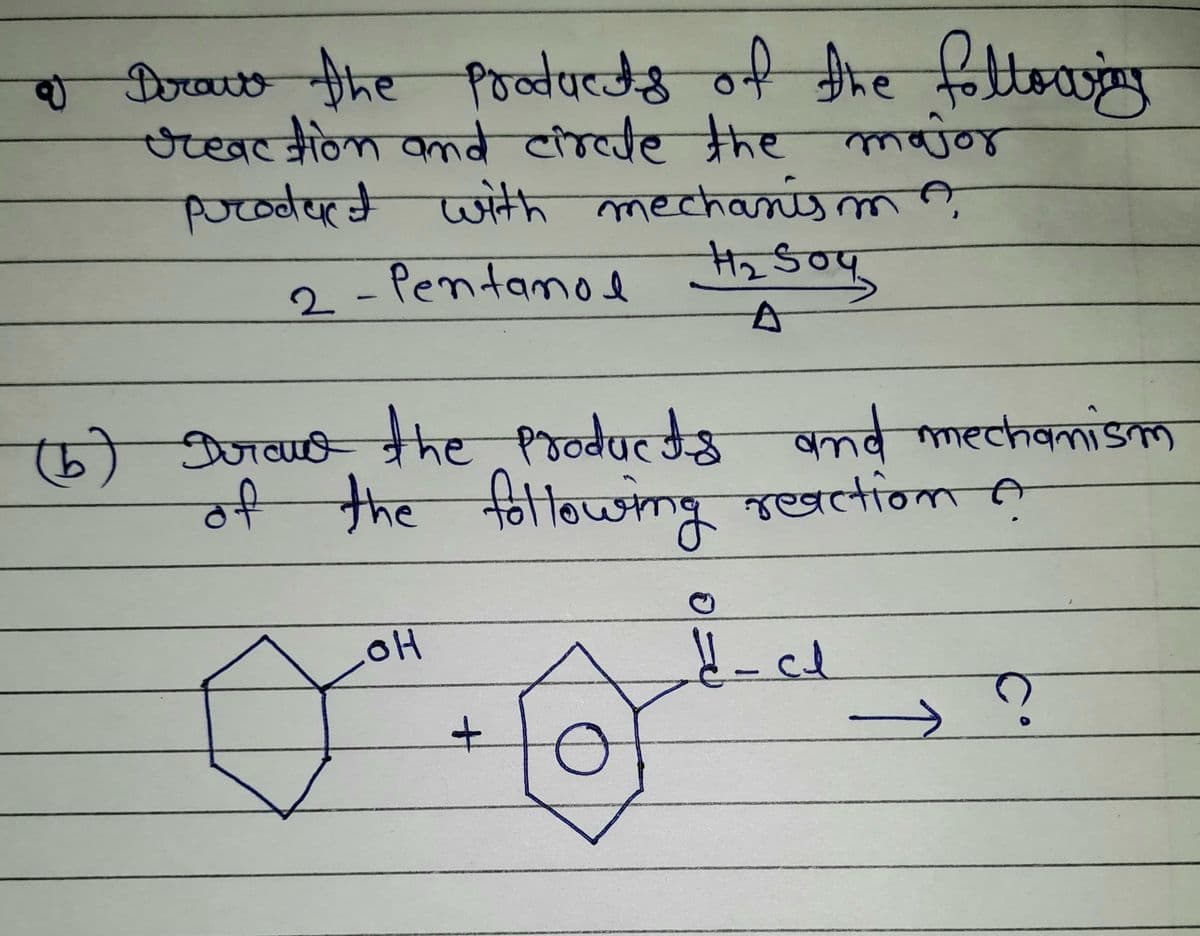 a) Draw the products of the following
reaction and circle the major
product with mechanism ?
2 - Pentanol H2SO4
Δ
(b) Draw the products and mechanism
of the following reaction ?
O
OH
C - Cl
+
?